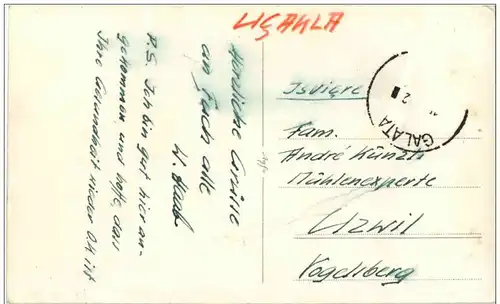 UÇAKLA
Herzliche Grüsse
an Euch alle
P.S. Ich bin gut hier an-
gekommen und hoffe, dass
Ihre Gesundheit wieder OK ist
Isviçre
Fam.
André Künzli
Mühlenexperte
Uzwil
Vogelsberg
GALATA